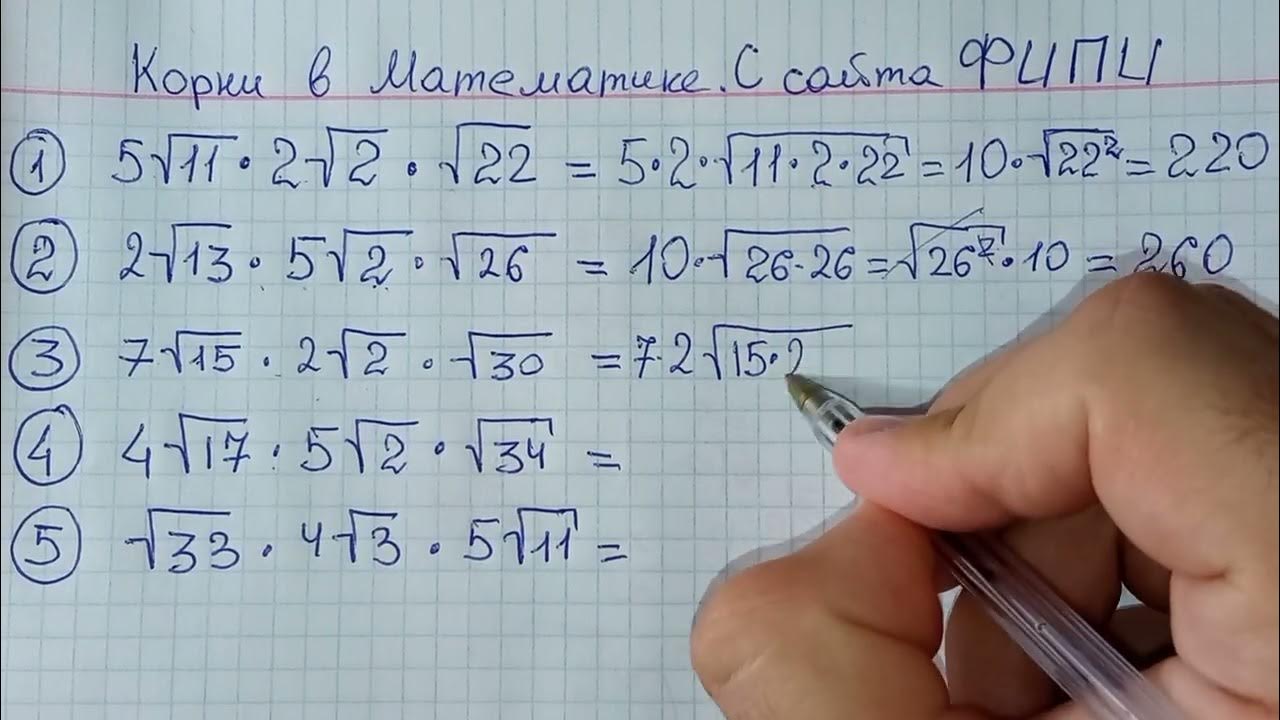 Корни в Математике. С сайта ФИПИ
① 5√11 · 2√2 · √22 = 5·2·√11·2·22 = 10·√22² = 220
② 2√13 · 5√2 · √26 = 10·√26·26 = √26²·10 = 260
③ 7√15 · 2√2 · √30 = 7·2√15·2
④ 4√17 · 5√2 · √34 =
⑤ √33 · 4√3 · 5√11 =